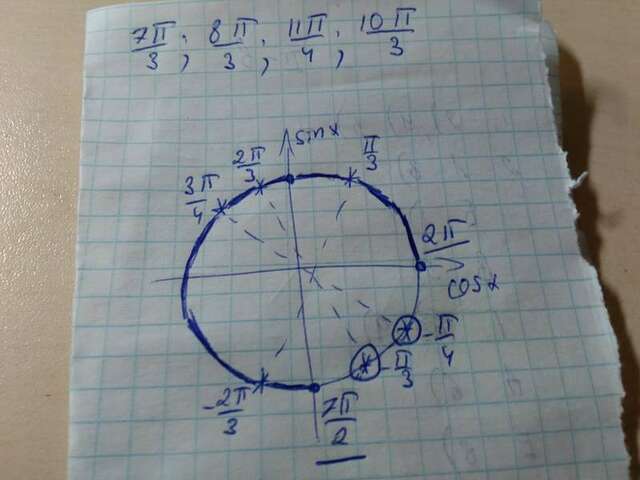 7π/3 ; 8π/3 ; 11π/4 ; 10π/3
sin x
2π/3
π/3
3π/4
2π
cos x
-π/4
-π/3
-2π/3
7π/2